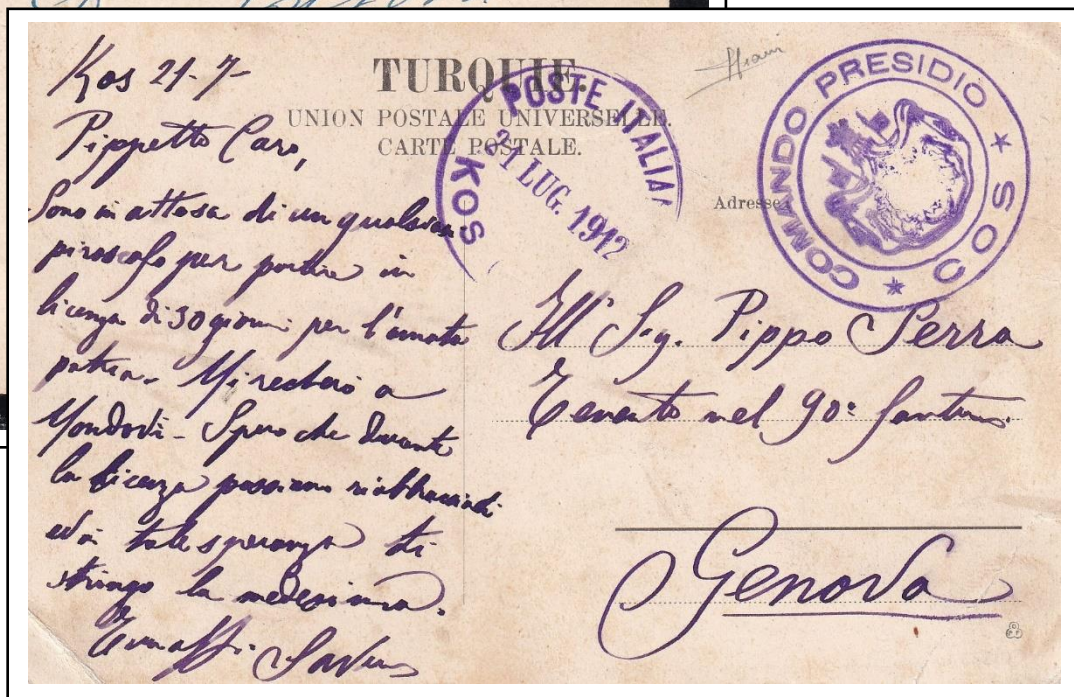 Kos 21-7-
Pippetto Caro,
Sono in attesa di un qualsiasi
piroscafo per partire in
licenza di 30 giorni per l'amata
patria. Mi recherò a
Mondovì - Spero che durante
la licenza possiamo riabbracciarci
ed in tale speranza ti
stringo la medesima.
TURQUIE.
UNION POSTALE UNIVERSELLE.
CARTE POSTALE.
POSTE ITALIA
21 LUG. 1912
KOS
COMANDO PRESIDIO ★ COS ★
Adresse
Ill' Sig. Pippo Serra
Tenente nel 90º
Genova